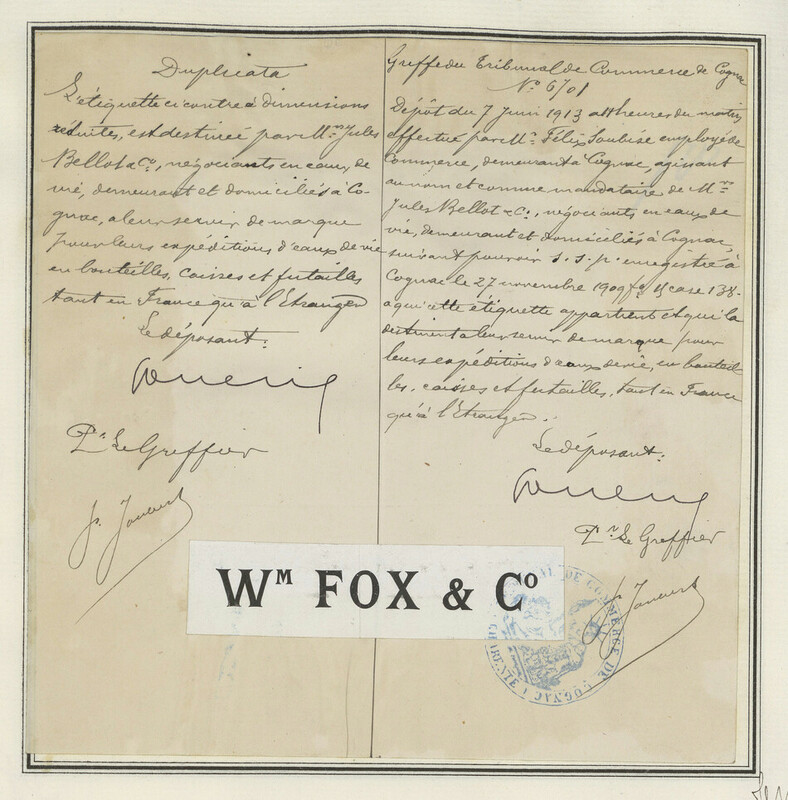 Duplicata
L'étiquette ci contre à dimensions
réduites, est destinée par Mrs Jules
Bellot & Co, négociants en eaux de
vie, demeurant et domiciliés à Co-
gnac, a leur servir de marque
pour leurs expéditions d'eaux de vie
en bouteilles, caisses et futailles
tant en France qu'à l'Etranger
Le déposant:
Pr Le Greffier
Greffe du Tribunal de Commerce de Cognac
No 6701
Dépôt du 7 Juin 1913 à heures du matin
effectué par Mr Félix Soubise employé de
Commerce, demeurant a Cognac, agissant
au nom et comme mandataire de Mrs
Jules Bellot & Co, négociants en eaux de
vie, demeurant et domiciliés à Cognac,
suivant pouvoir s.s.p. enregistré à
Cognac le 27 novembre 1909 case 138-
a qui cette étiquette appartient et qui la
destinent a leur servir de marque pour
leurs expéditions d'eaux de vie, en bouteil
les, caisses et futailles, tant en France
qu'à l'Etranger.
Le déposant:
Pr Le Greffier
WM FOX & Co
TRIBUNAL DE COMMERCE DE COGNAC
CHARENTE